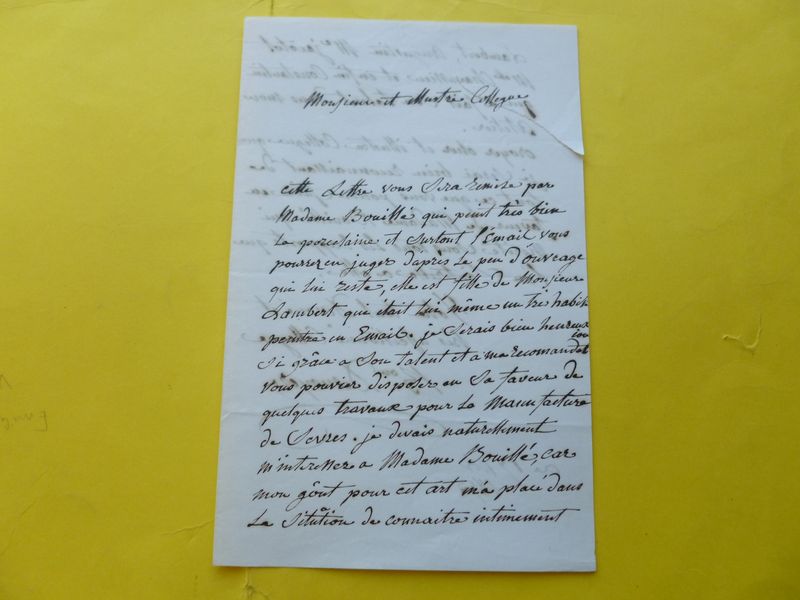 Monsieur et Illustre Collegue
cette Lettre vous Sera remise par
Madame Bouillé qui peint très bien
la porcelaine et surtout l'Email vous
pourrez en juger d'après le peu d'ouvrage
qui lui reste, elle est fille de Monsieur
Lambert qui était lui même un très habile
peintre en Email. je Serais bien heureux
si grâce a Son talent et a ma recomandation
vous pouviez disposer en Sa faveur de
quelques travaux pour la Manufacture
de Sevres. je devais naturellement
m'intresser a Madame Bouillé, car
mon gôut pour cet art m'a placé dans
la Situation de connaitre intimement